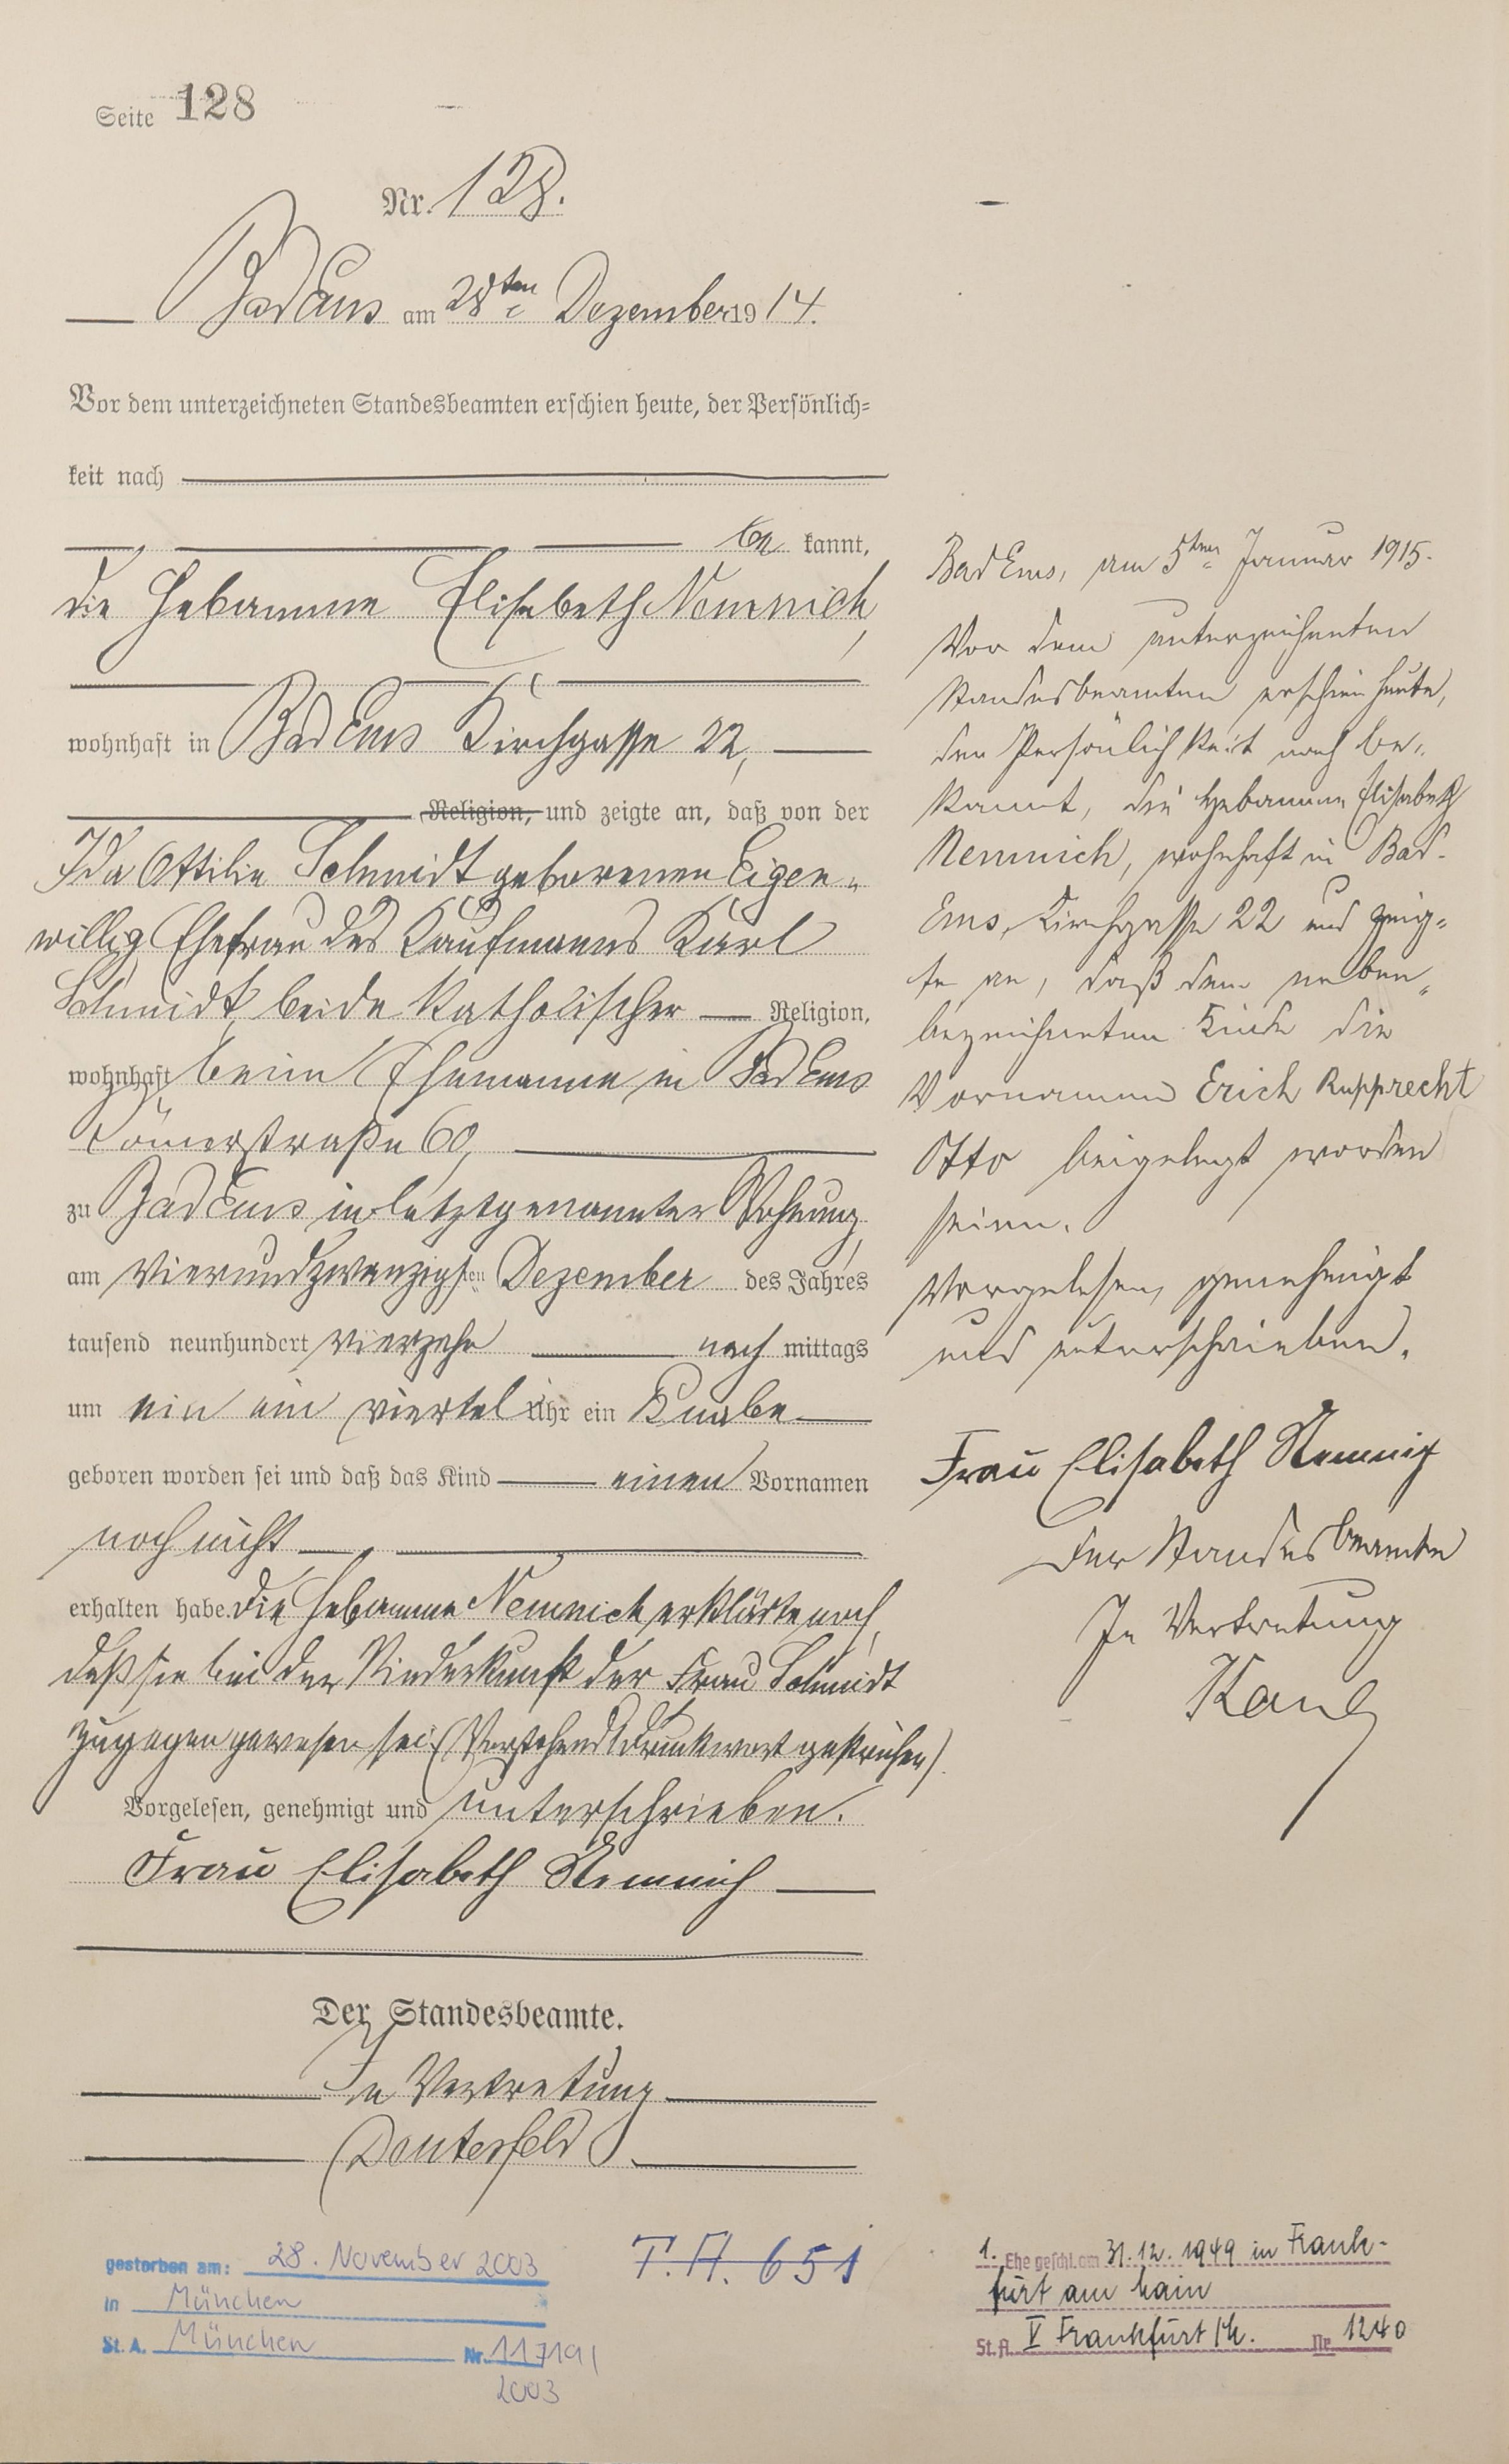 Seite 128
Nr. 128.
Bad Ems am 28ten Dezember 1914.
Vor dem unterzeichneten Standesbeamten erschien heute, der Persönlich=
keit nach
be kannt,
die Hebamme Elisabeth Nemnich,
wohnhaft in Bad Ems Kirchgasse 22,
Religion, und zeigte an, daß von der
Ida Ottilie Schmidt geborenen Eigen=
willig Ehefrau des Kaufmanns Karl
Schmidt, beide katholischer Religion,
wohnhaft beim Ehemanne in Bad Ems
Römerstraße 60,
zu Bad Ems in letztgenannter Wohnung,
am vierundzwanzigsten Dezember des Jahres
tausend neunhundert vierzehn nach mittags
um ein ein viertel Uhr ein Knabe
geboren worden sei und daß das Kind einen Vornamen
noch nicht
erhalten habe. Die Hebamme Nemnich erklärte noch,
daß sie bei der Niederkunft der Frau Schmidt
zugegen gewesen sei. (Vorstehend 1 Druckwort gestrichen).
Vorgelesen, genehmigt und unterschrieben.
Frau Elisabeth Nemnich
Der Standesbeamte.
In Vertretung
gestorben am: 28. November 2003
in München
St. A. München Nr. 117191
2003
T.A. 651
Bad Ems, am 5ten Januar 1915.
Vor dem unterzeichneten
Standesbeamten erschien heute,
der Persönlichkeit nach be=
kannt, die Hebamme Elisabeth
Nemnich, wohnhaft in Bad=
Ems, Kirchgasse 22 und zeig=
te an, daß dem neben=
bezeichneten Kinde die
Vornamen Erich Rupprecht
Otto beigelegt worden
seien.
Vorgelesen, genehmigt
und unterschrieben.
Frau Elisabeth Nemnich
Der Standesbeamte
In Vertretung
1. Ehe geschl. am 31.12.1949 in Frank-
furt am Main
St. A. V Frankfurt/M. Nr 1240